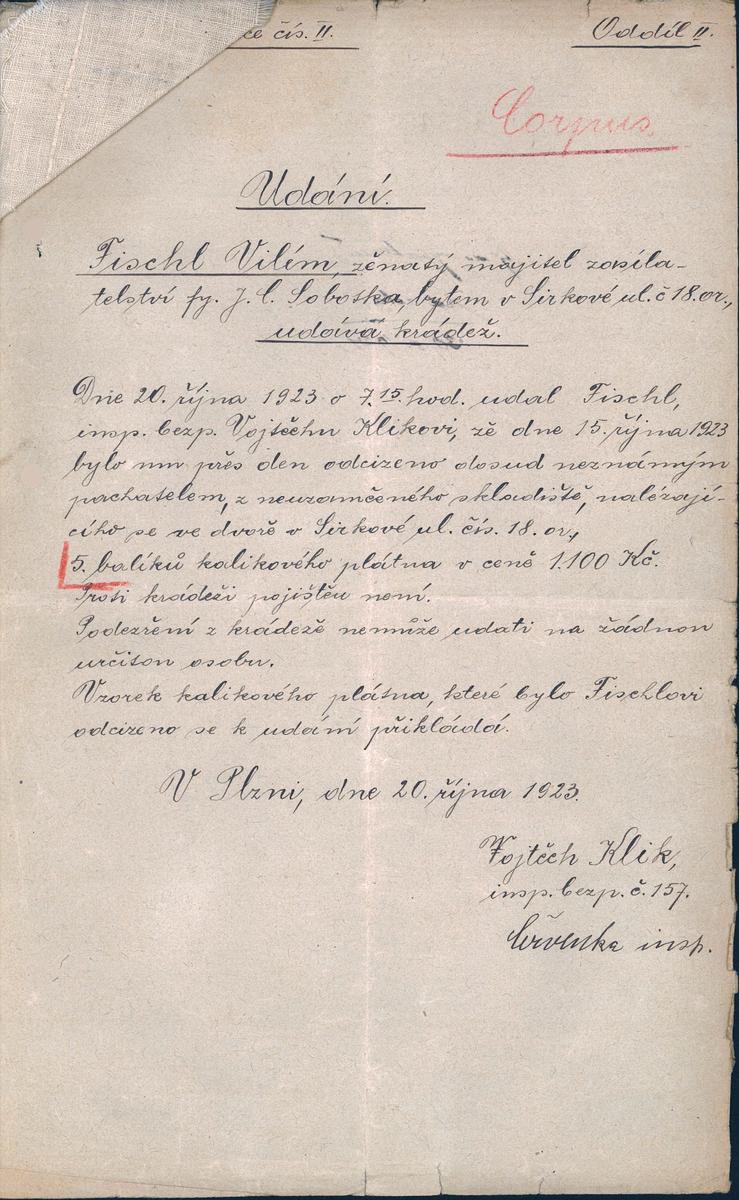 ce čís. II. Oddíl II.
Corpus
Udání.
Fischl Vilém, ženatý majitel zasíla-
telství fy. J. C. Sobotka, bytem v Sirkové ul. č 18. or.,
udává krádež.
Dne 20. října 1923 o 7.15. hod. udal Fischl,
insp. bezp. Vojtěchu Klikovi, že dne 15. října 1923
bylo mu přes den odcizeno dosud neznámým
pachatelem, z neuzamčeného skladiště, nalézají-
cího se ve dvoře v Sirkové ul. čís. 18. or.,
5. balíků kalikového plátna v ceně 1.100 Kč.
Proti krádeži pojištěn není.
Podezření z krádeže nemůže udati na žádnou
určitou osobu.
Vzorek kalikového plátna, které bylo Fischlovi
odcizeno se k udání přikládá.
V Plzni, dne 20. října 1923.
Vojtěch Klik,
insp. bezp. č. 157.
Červenka insp.